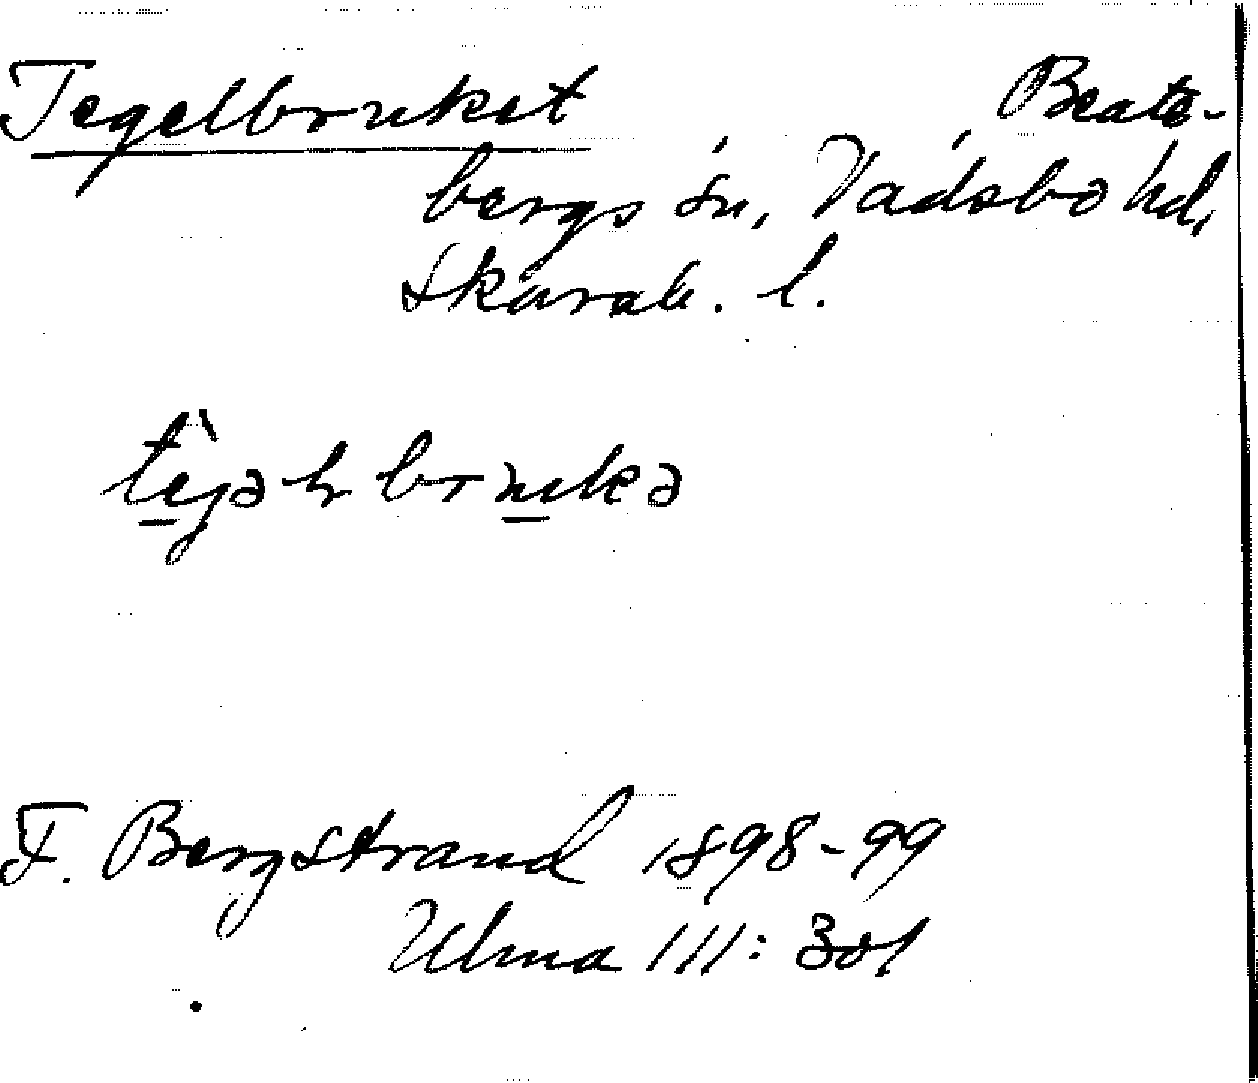 Tegelbruket Beate-
bergs sn, Vadsbo hd,
Skarab. l.
te̱jəɫbru̱kə
F. Bergstrand 1898-99
Ulma 111: 301